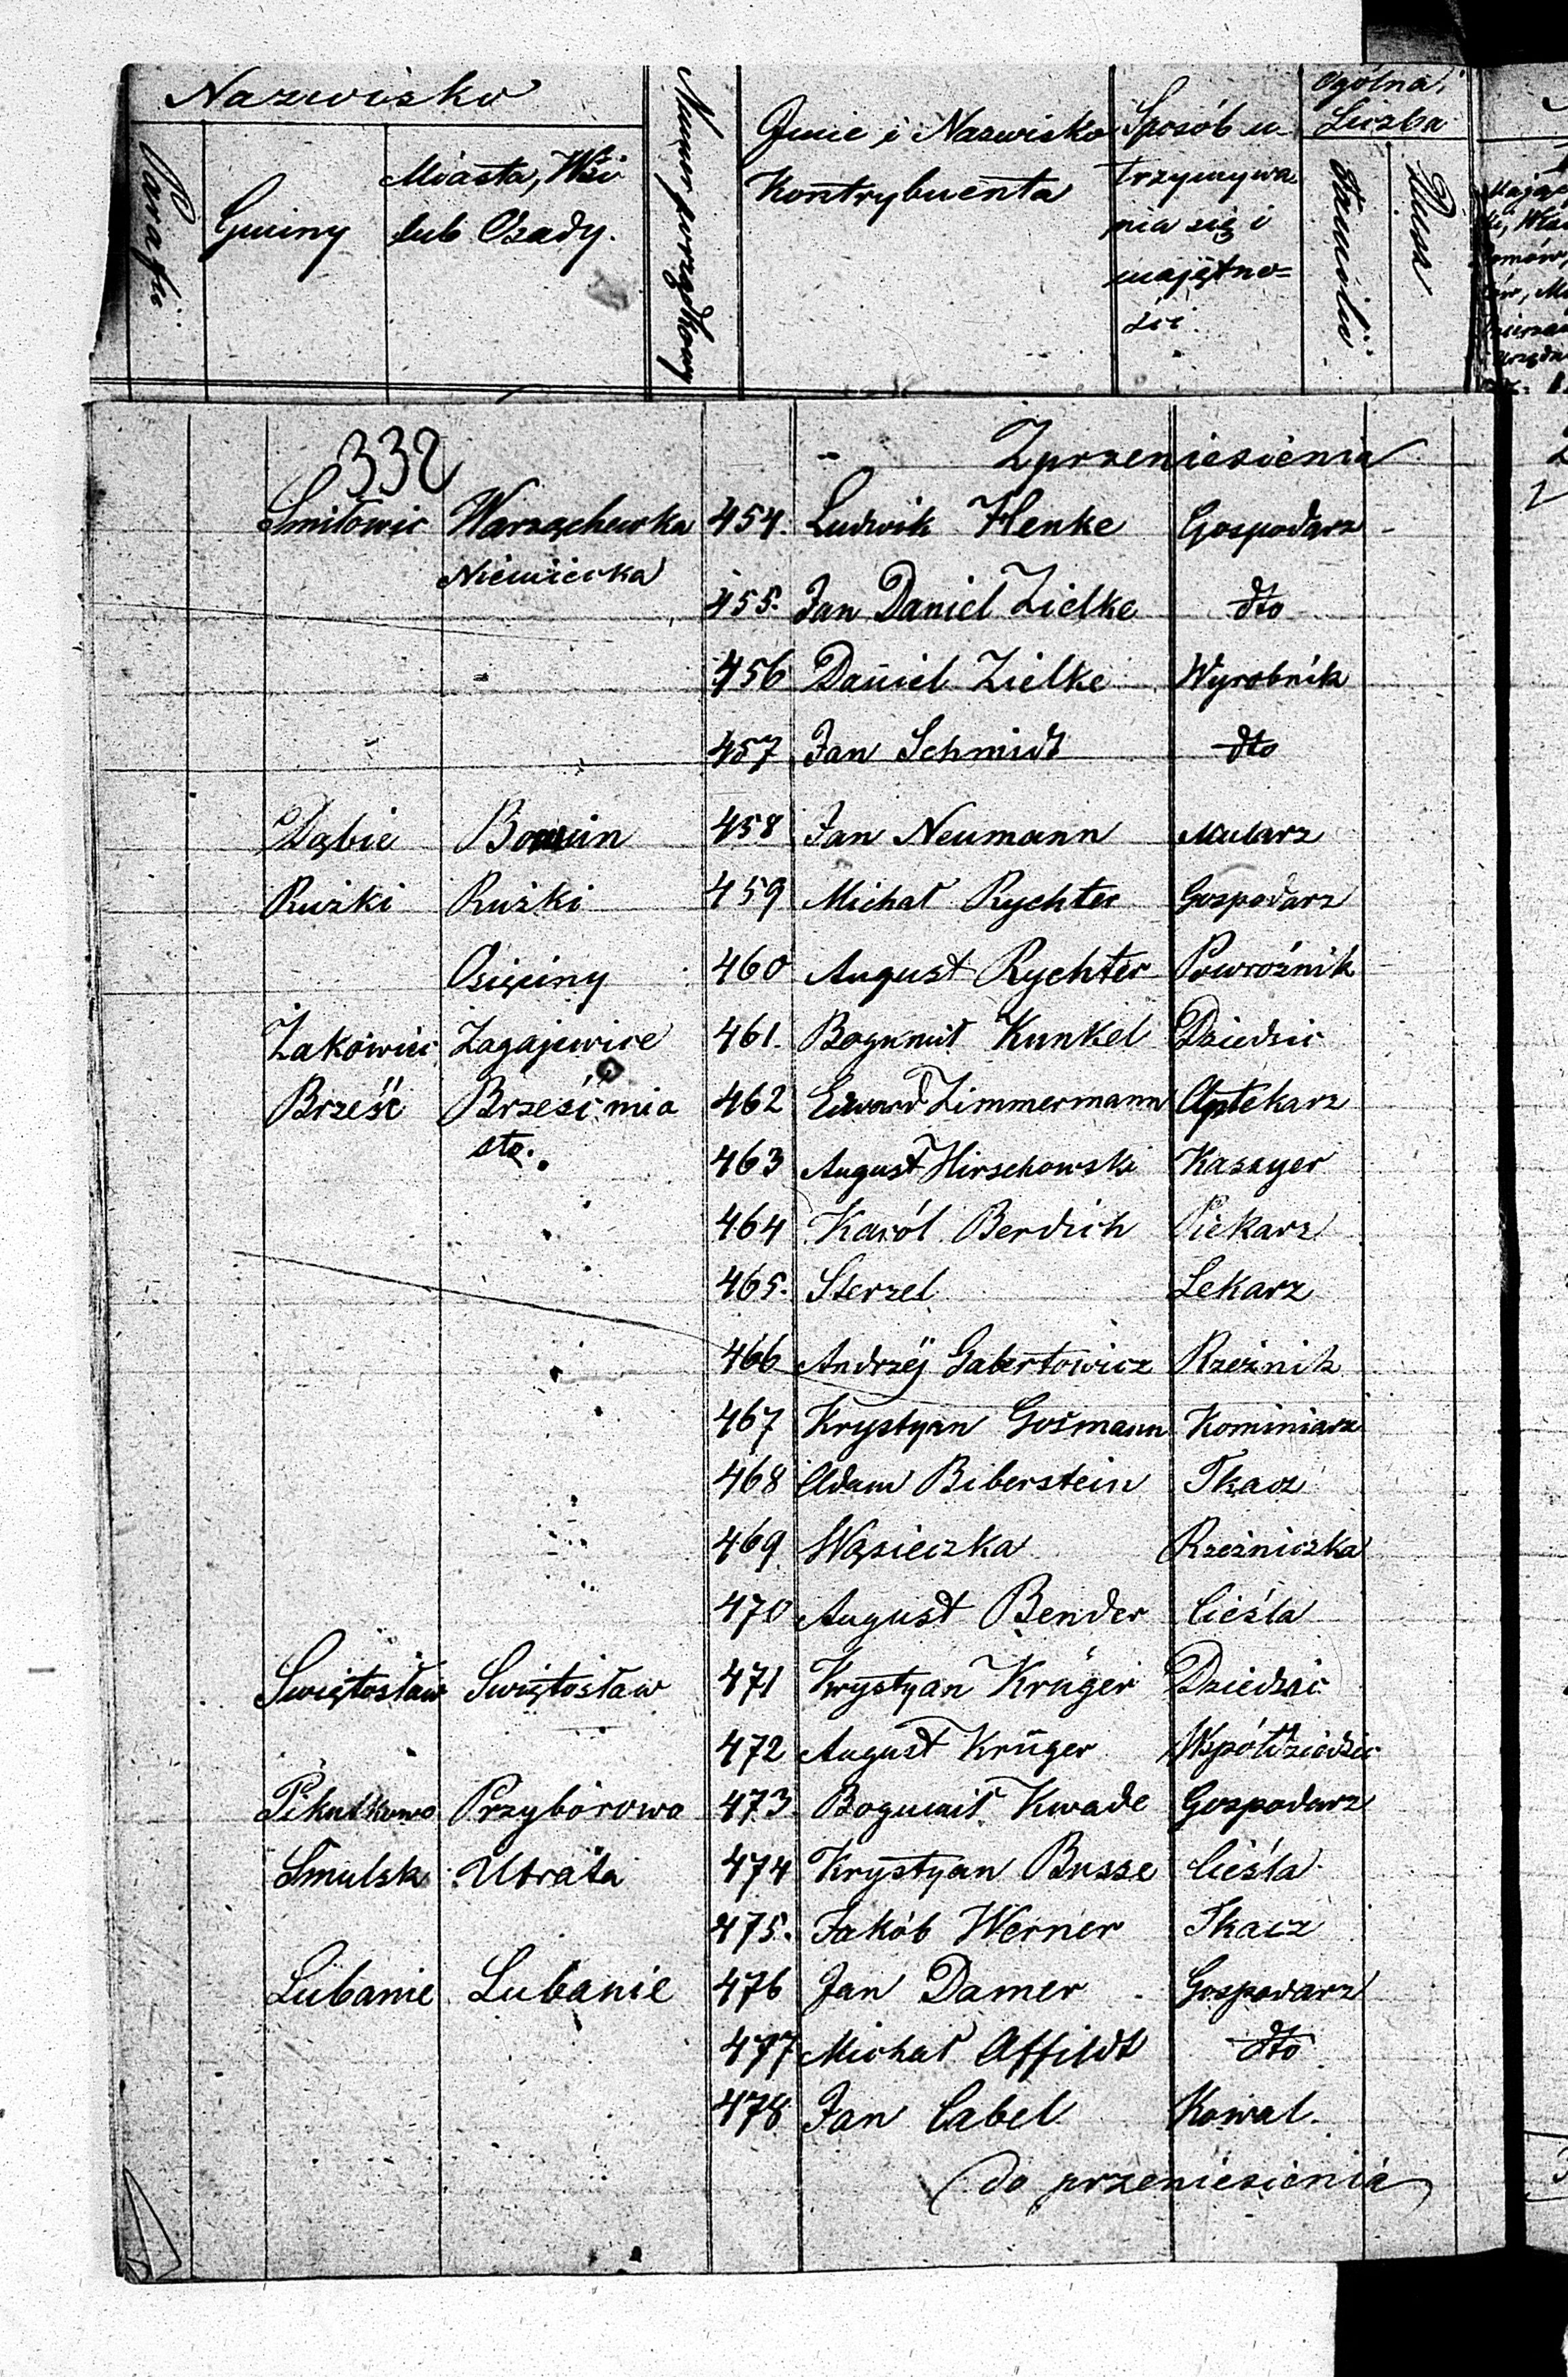 Nazwisko
Parafii
Gminy
Miasta, Wsi
lub Osady.
Numer porządkowy
Imie i Nazwisko
Kontrybuenta
Sposób u-
trzymywa
nia się i
majętno=
ści.
Ogólna
Liczba
Familii
Dusz
332
Z przeniesienia
Smiłowic Warząchewka 454. Ludwik Henke Gospodarz
Niemiecka
455. Jan Daniel Zielke dto
456 Daniel Zielke Wyrobnik
457 Jan Schmidt dto
Dąbie 458 Jan Neumann Mularz
Ruszki Ruszki 459 Michał Rychter Gospodarz
Osięciny 460 August Rychter Powroźnik
Zakowic Zagajewice 461. Bogumił Kunkel Dziedzic
Brześć Brześć mia 462 Edward Zimmermann Aptekarz
sto.
463 August Hirschowski Kassyer
464 Karól Berdich Piekarz
465. Sterzel Lekarz
466 Andrzéj Gabertowicz Rzeźnik
467 Krystyan Gośmann Kominiarz
468 Adam Biberstein Tkacz
469 Wąsieczka Rzeźniczka
470 August Bender Cieśla
Swiętosław Swiętosław 471 Krystyan Krüger Dziedzic
472 August Krüger Współdziedzic
Pikutkowo Przyborowo 473 Bogumił Kwade Gospodarz
Smulsk Utrata 474 Krystyan Busse Cieśla
475. Jakób Werner Tkacz
Lubanie Lubanie 476 Jan Damer Gospodarz
477 Michał Affildt dto
478 Jan Cabel Kowal.
do przeniesienia